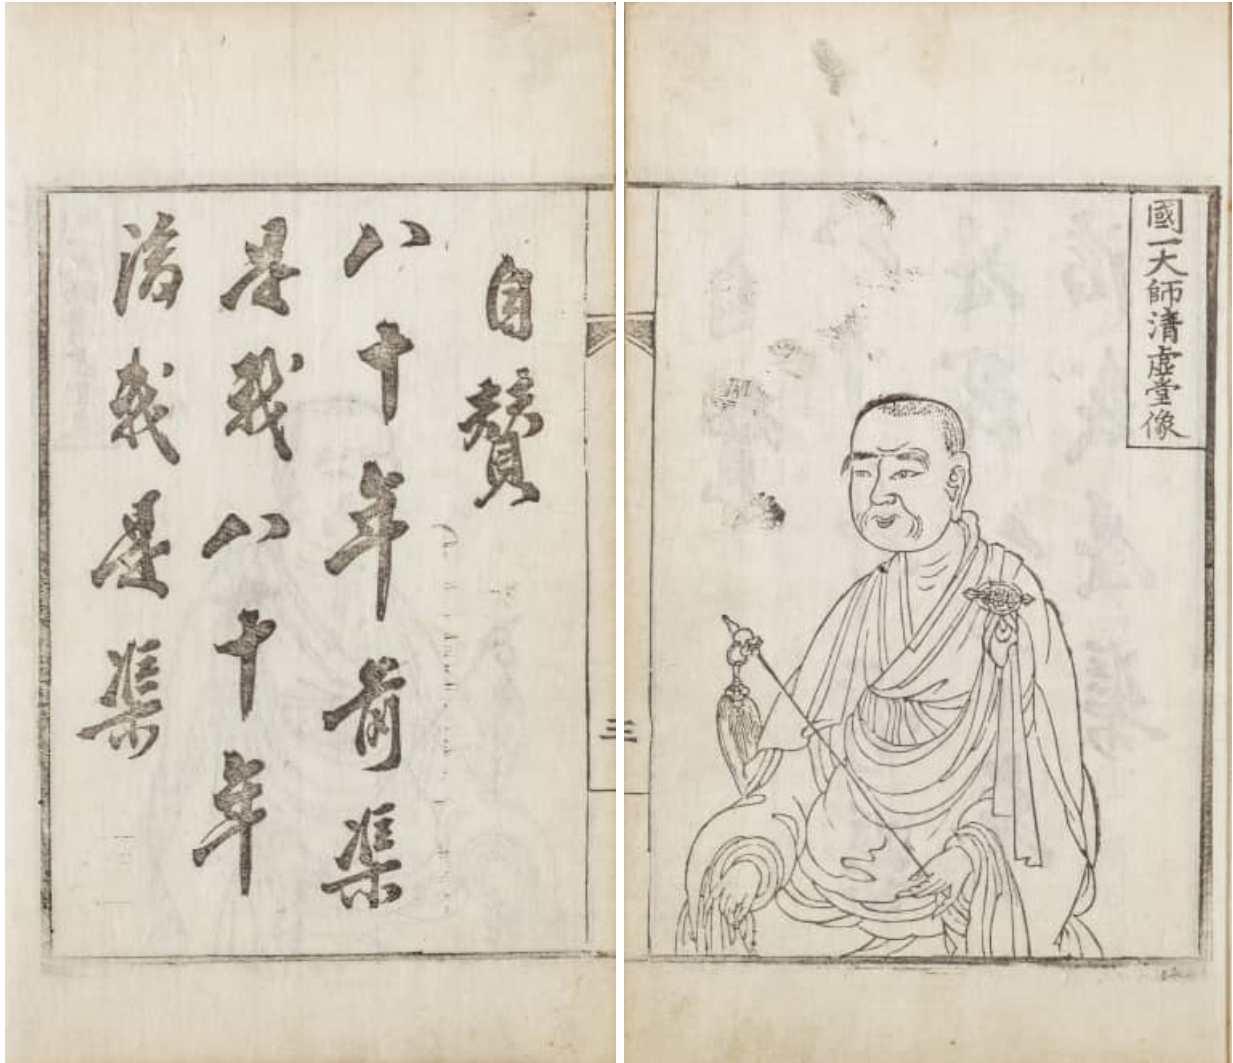 國一大師清虛堂像
三
自贊
八十年前渠
是我八十年
後我是渠